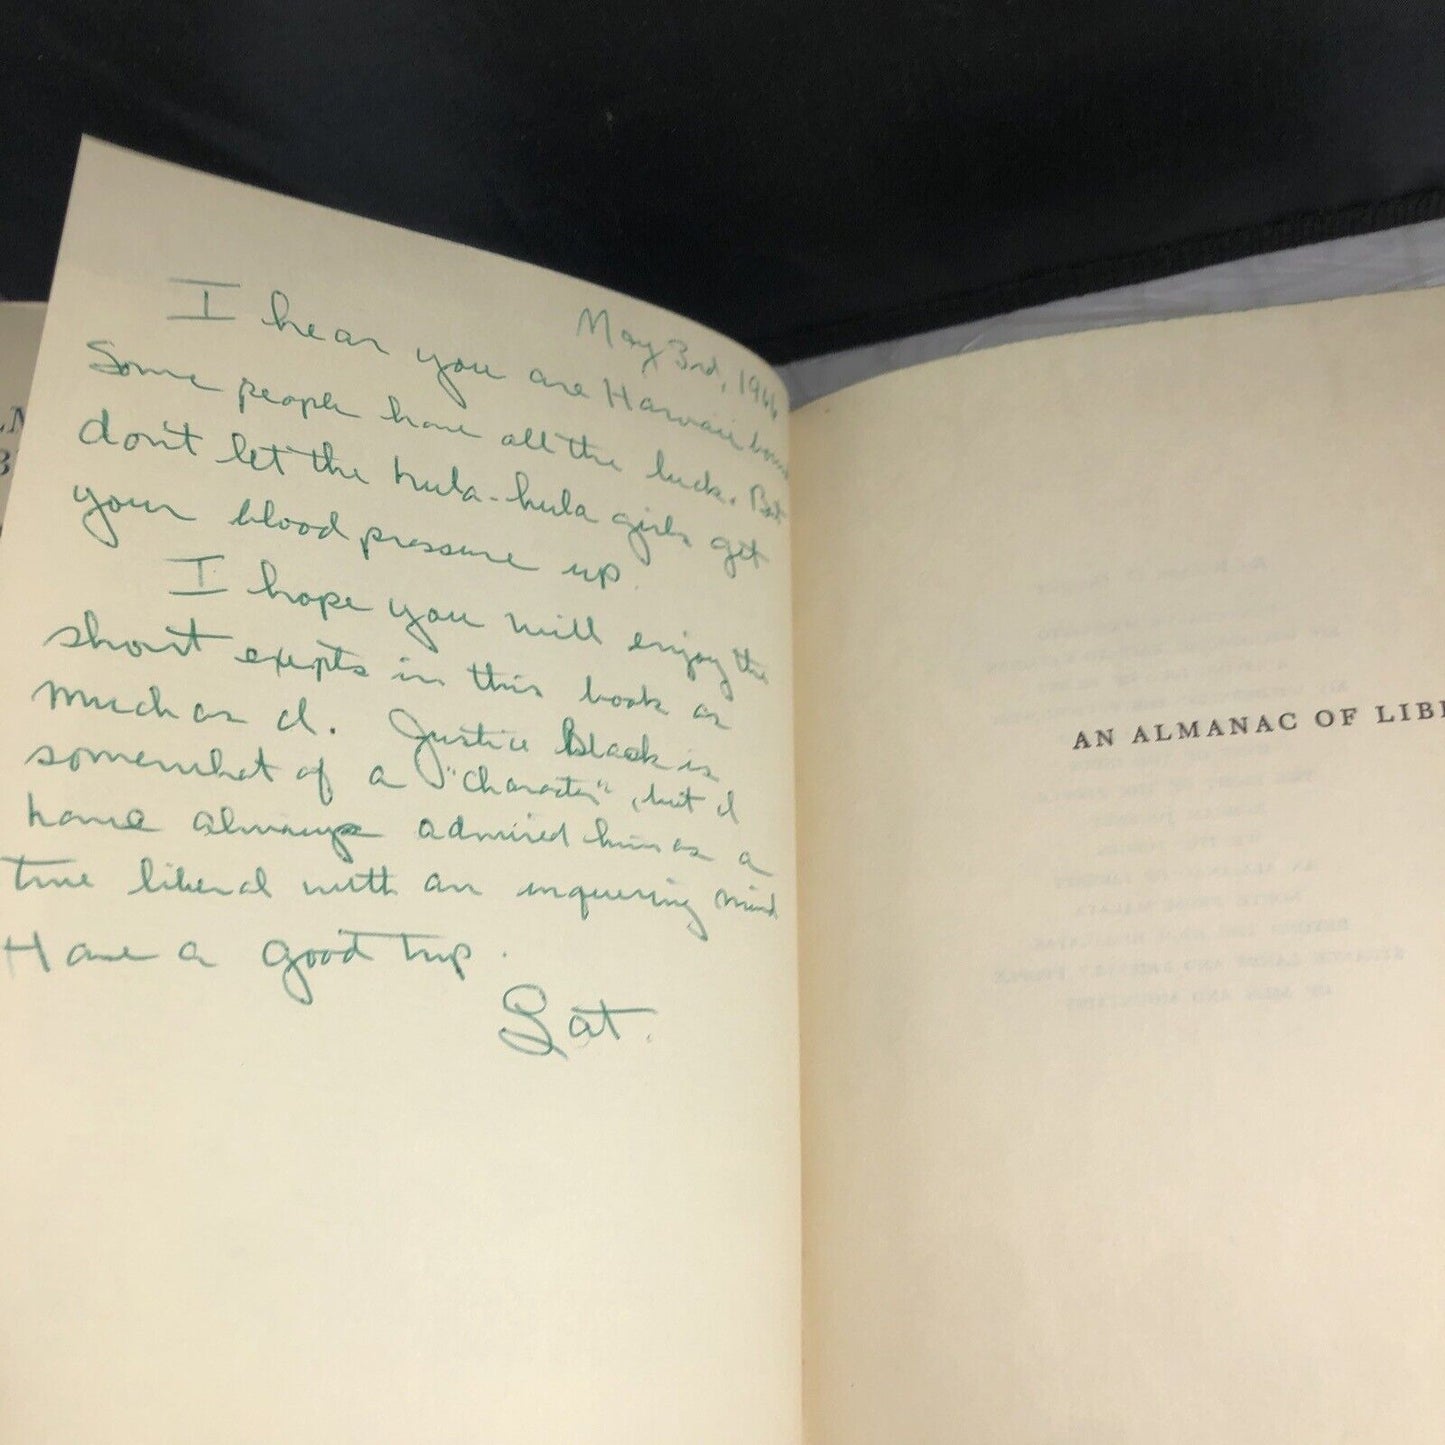 May 3rd, 1966
I hear you are Hawaii bound
Some people have all the luck. But
don't let the hula-hula girls get
your blood pressure up.
I hope you will enjoy the
short exerpts in this book as
much as I. Justice Black is
somewhat of a "character", but I
have always admired him as a
true liberal with an inquering mind
Have a good trip.
Sat.
AN ALMANAC OF LIB